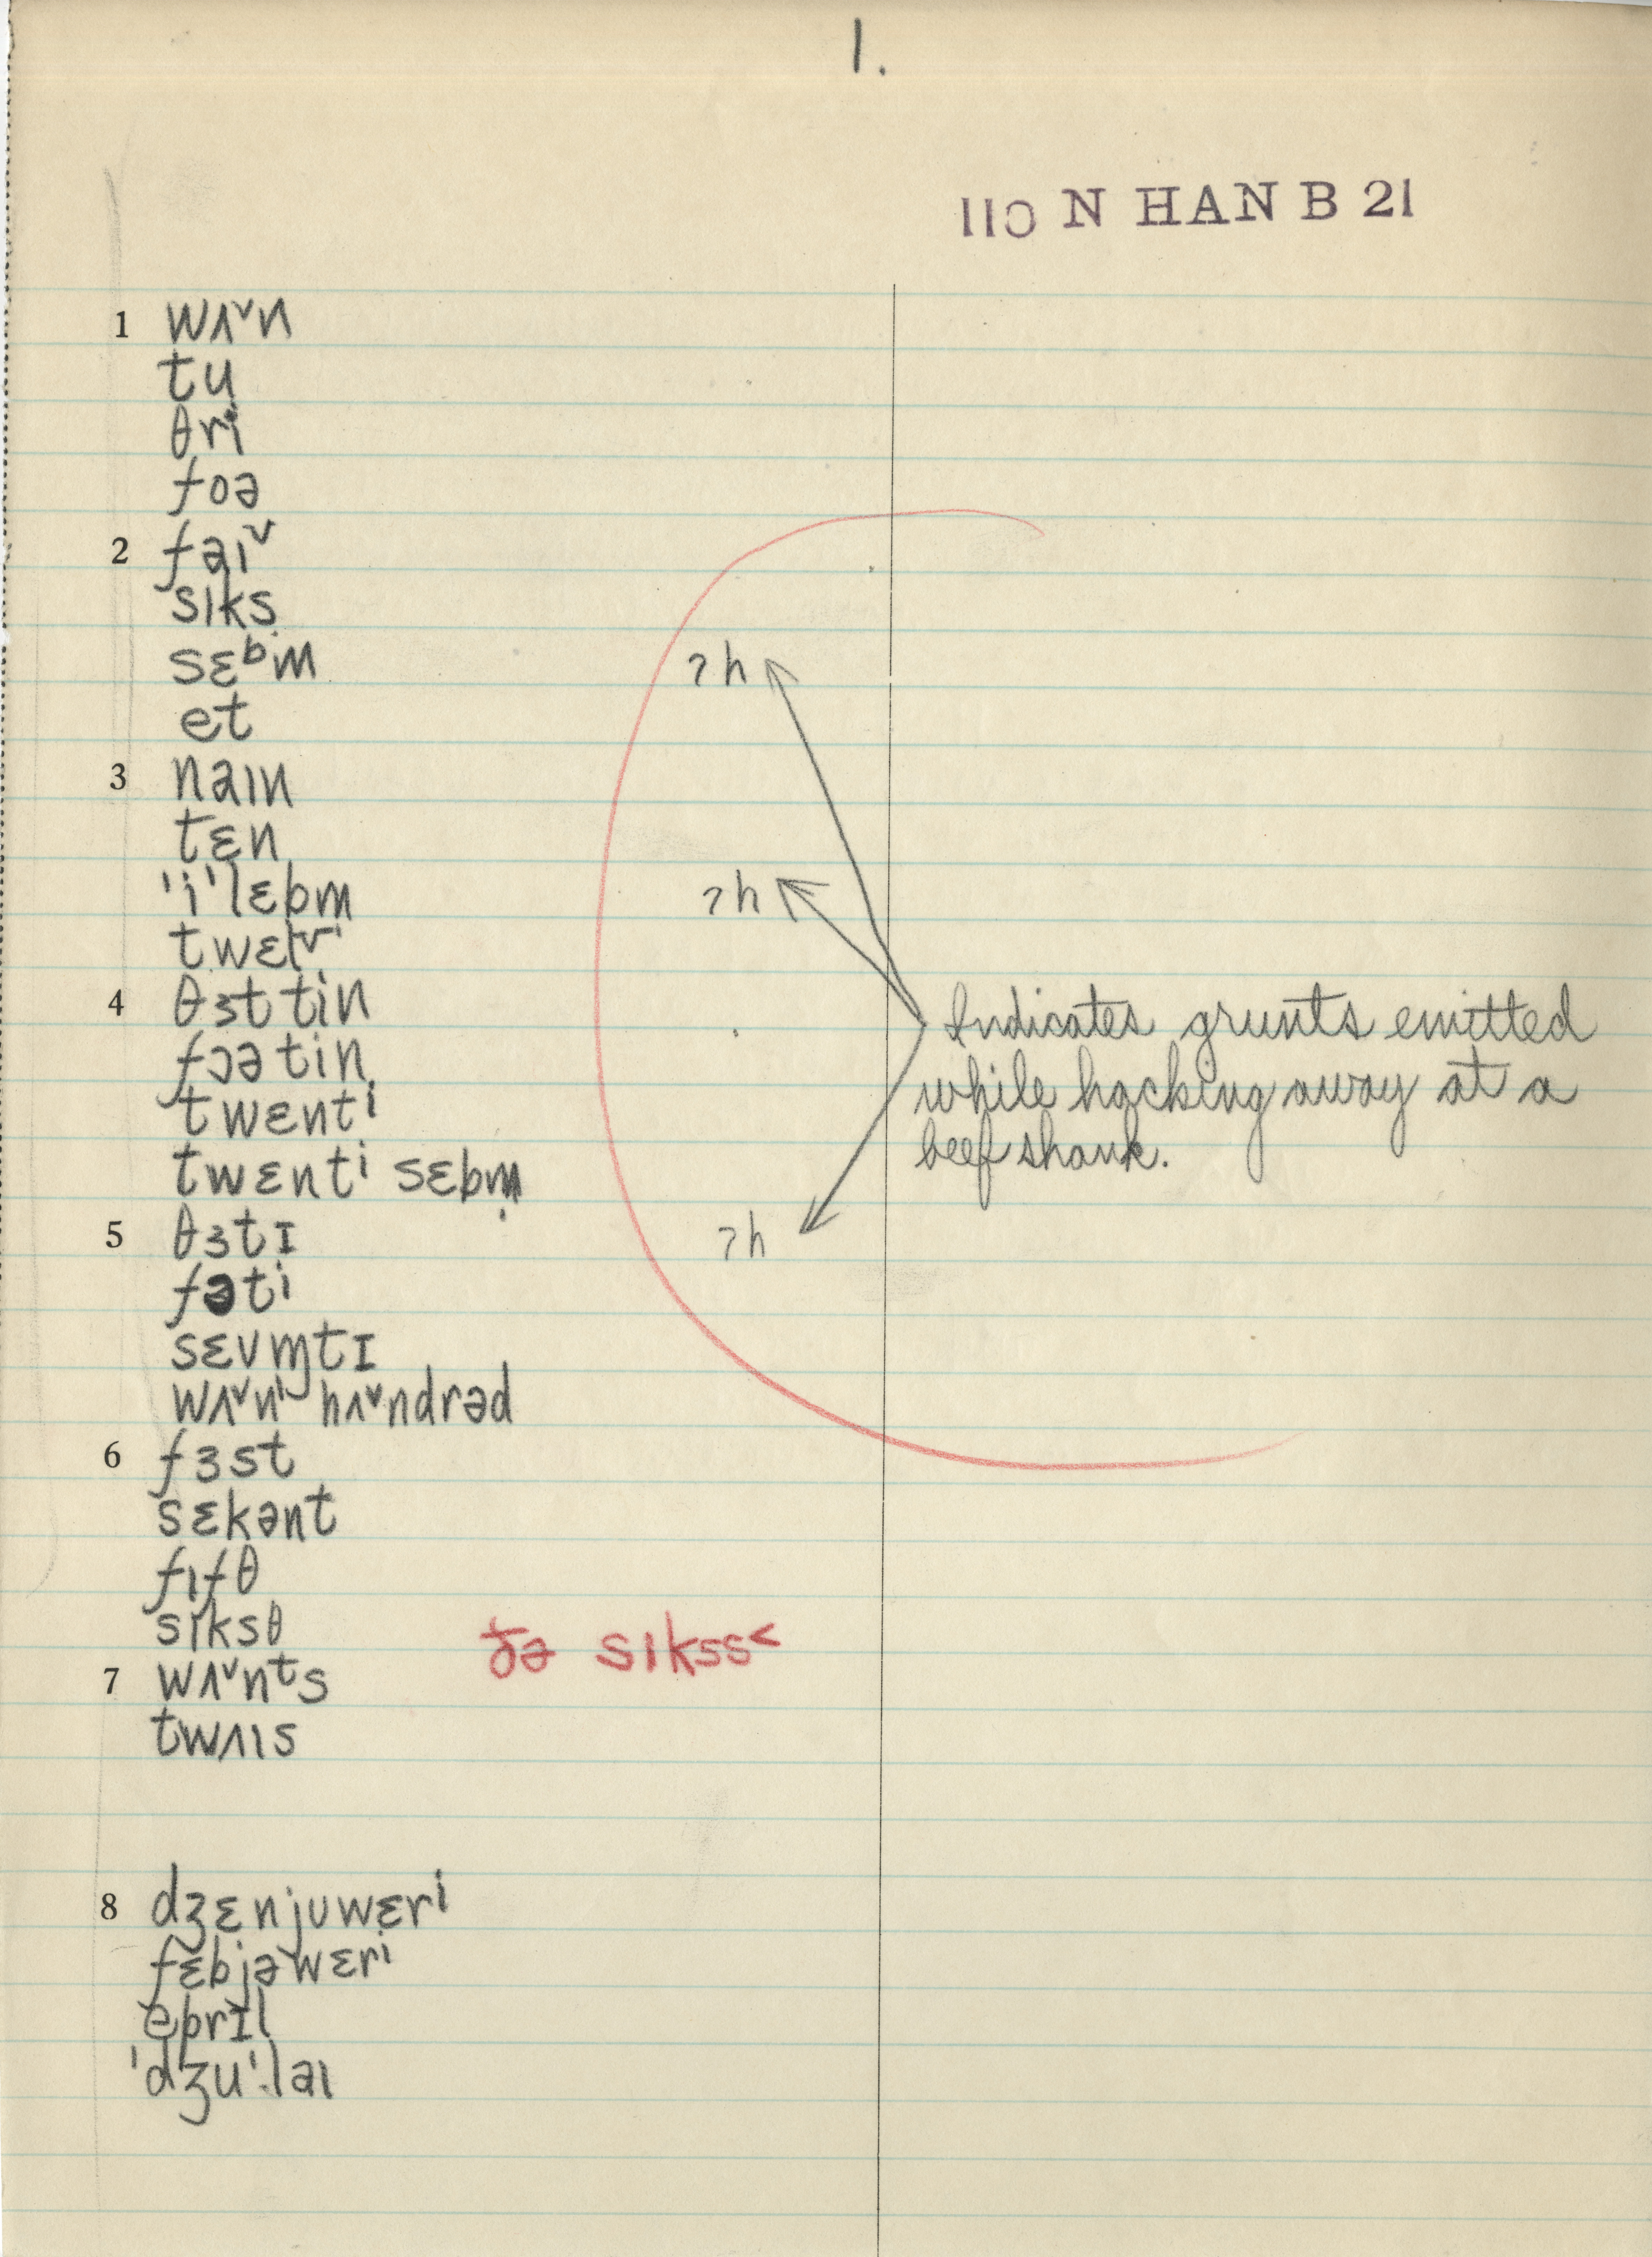 1.
110 N HAN B 21
1 wʌ˅n
tu
θri
foə
2 faɪᵛ
sɪks
sɛᵇm
ʔh
et
3 naɪn
tɛn
'i'lɛbm
ʔh
twɛlv
4 θɜttin
fɔətin
twɛntⁱ
twɛntⁱ sɛbm̩
Indicates grunts emitted
while hacking away at a
beef shank.
5 θɜtɪ
ʔh
fətⁱ
sɛvm̩tɪ
wʌ˅n hʌ˅ndrəd
6 fɜst
sɛkənt
fɪfθ
sɪksθ ðə sɪkss<
7 wʌ˅nᵗs
twʌɪs
8 dʒɛnjuwɛrⁱ
fɛbjəwɛrⁱ
eprɪl
'dʒu'laɪ